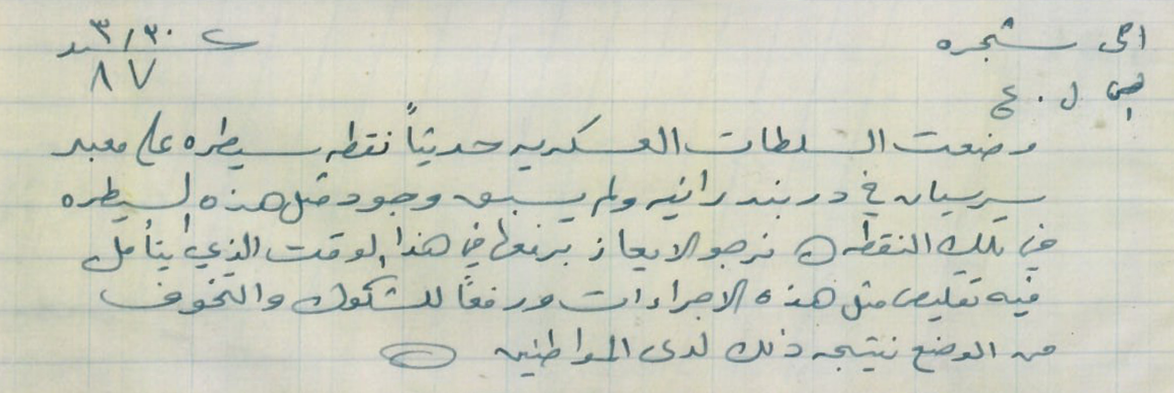 الى شجره
ل . ع
٣٠/٣
٨٧
وضعت السلطات العسكريه حديثاً نقطه سيطره على معبر
سرسيان في دربندرانيه ولم يسبق وجود مثل هذه السيطره
في تلك النقطه ○ نرجو الايعاز برفعها في هذا الوقت الذي يتأمل
فيه تقليص مثل هذه الاجراءات ورفعاً للشكوك والتخوف
من الوضع نتيجه ذلك لدى المواطنين ○